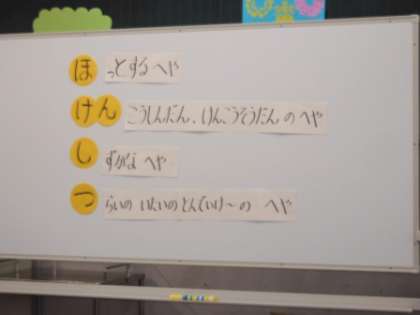 ほっとするへや
けんこうしんだん、けんこうそうだんのへや
しずかなへや
つらいの いたいの とんでいけ〜の へや